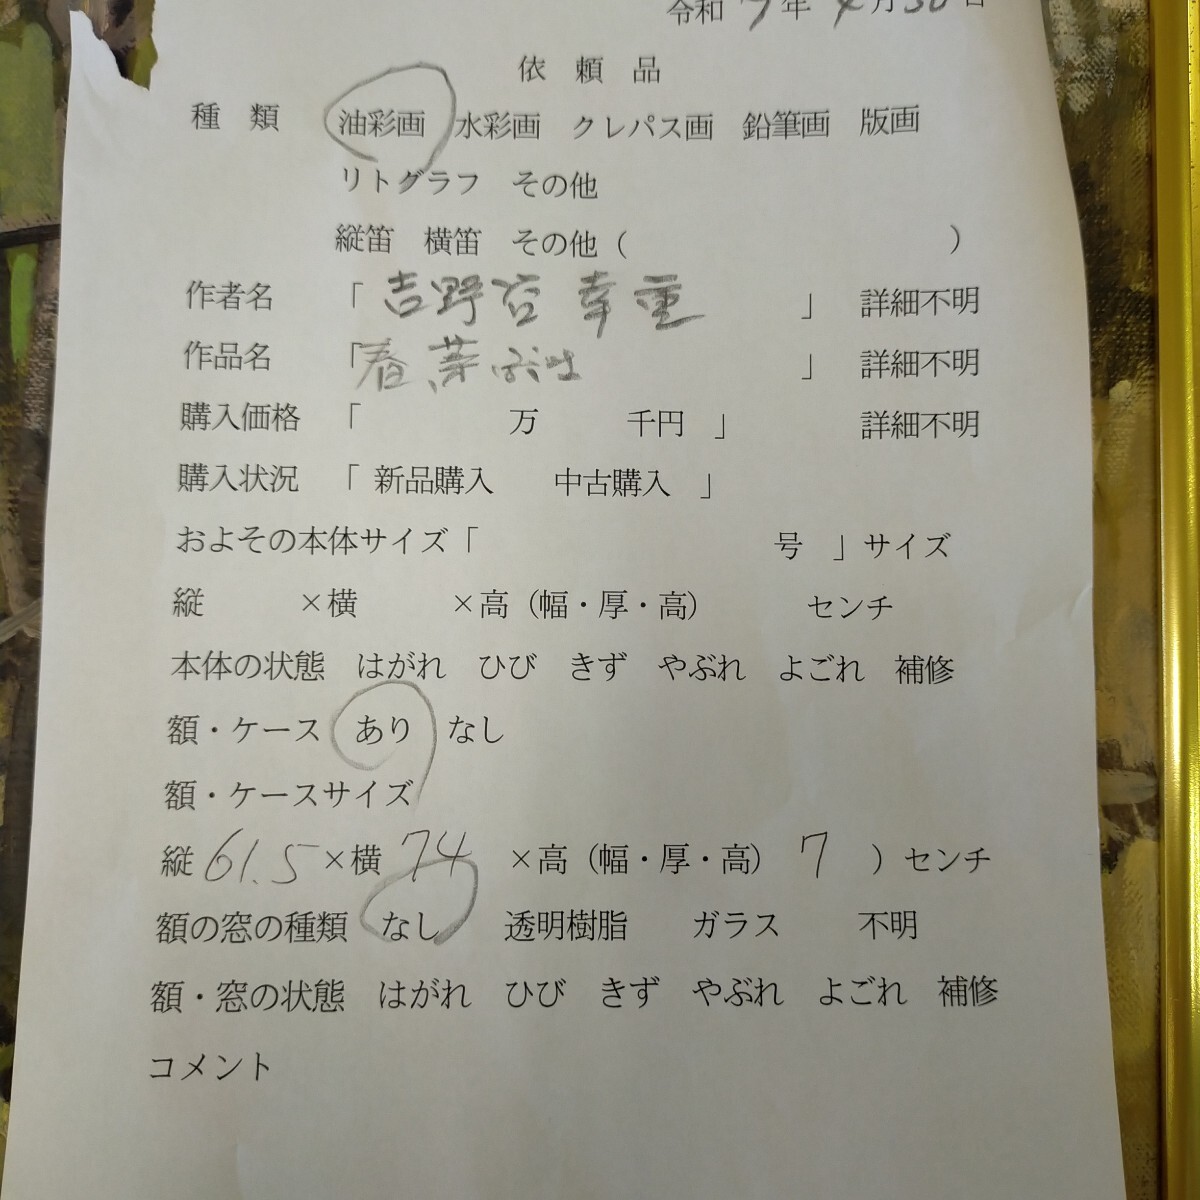 令和 7年 4月30日
依 頼 品
種 類 油彩画 水彩画 クレパス画 鉛筆画 版画
リトグラフ その他
縦笛 横笛 その他（ ）
作者名 「 吉野谷 幸重 」 詳細不明
作品名 「春芽 」 詳細不明
購入価格 「 万 千円 」 詳細不明
購入状況 「 新品購入 中古購入 」
およその本体サイズ「 号 」サイズ
縦 ×横 ×高（幅・厚・高） センチ
本体の状態 はがれ ひび きず やぶれ よごれ 補修
額・ケース あり なし
額・ケースサイズ
縦 61.5 ×横 74 ×高（幅・厚・高） 7 ）センチ
額の窓の種類 なし 透明樹脂 ガラス 不明
額・窓の状態 はがれ ひび きず やぶれ よごれ 補修
コメント